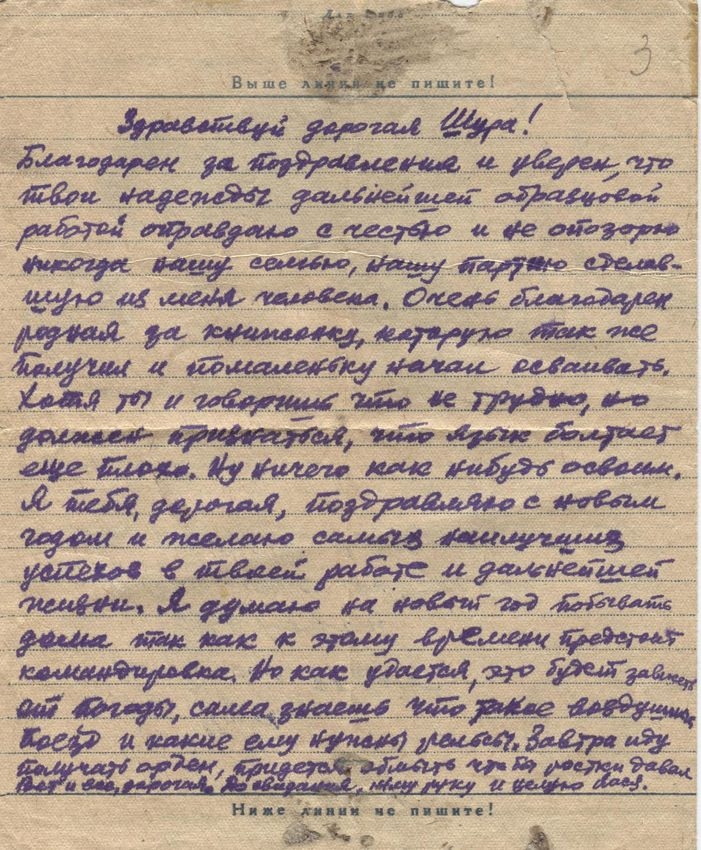 3
Выше линии не пишите!
Здравствуй дорогая Шура!
Благодарен за поздравления и уверен, что
твои надежды дальнейшей образцовой
работой оправдаю с честью и не опозорю
никогда нашу семью, нашу партию сделав-
шую из меня человека. Очень благодарен
родная за книжонку, которую так же
получил и помаленьку начал осваивать.
Хотя ты и говоришь что не трудно, но
должен признаться, что язык болтает
еще плохо. Ну ничего как нибудь освоим.
Я тебя, дорогая, поздравляю с новым
годом и желаю самых наилучших
успехов в твоей работе и дальнейшей
жизни. Я думаю на новый год побывать
дома так как к этому времени предстоит
командировка. Но как удастся, это будет зависеть
от погоды, сама знаешь что такое воздушный
поезд и какие ему нужны рельсы. Завтра иду
получать орден, придется обмыть что бы ростки давал
Вот и все, дорогая. До свидания, жму руку и целую Вася.
Ниже линии не пишите!